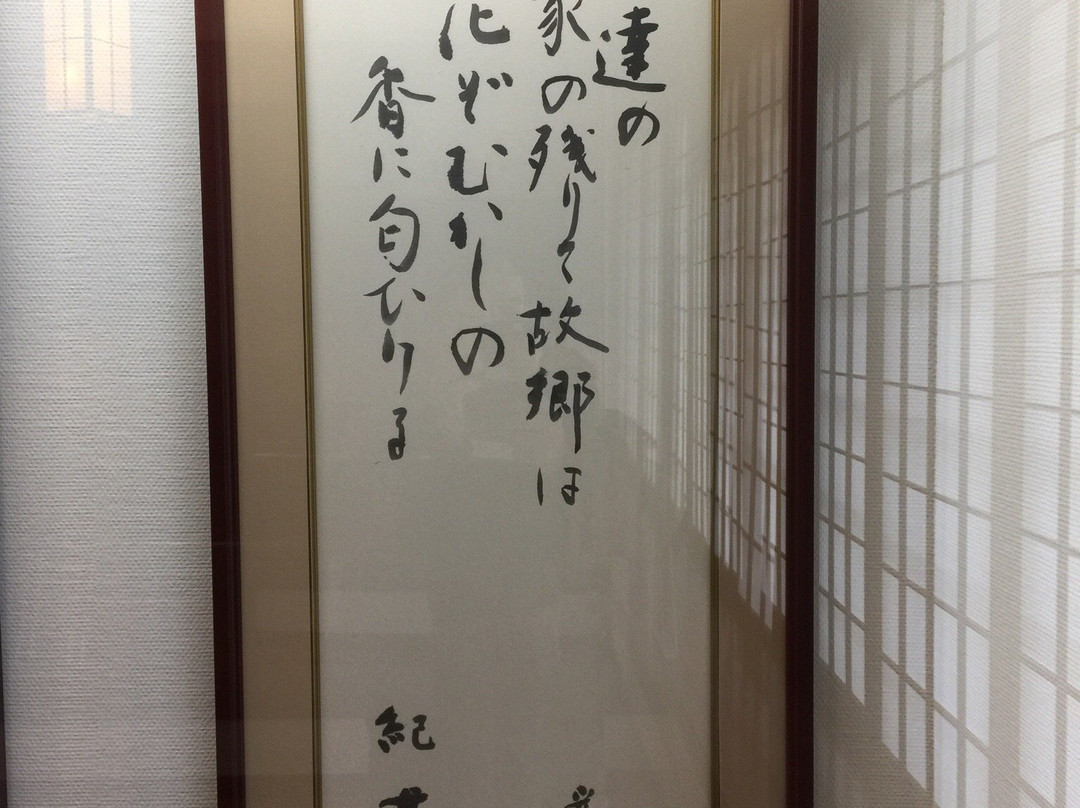 達の
家の残りて故郷は
花ぞむかしの
香に匂ひける
紀